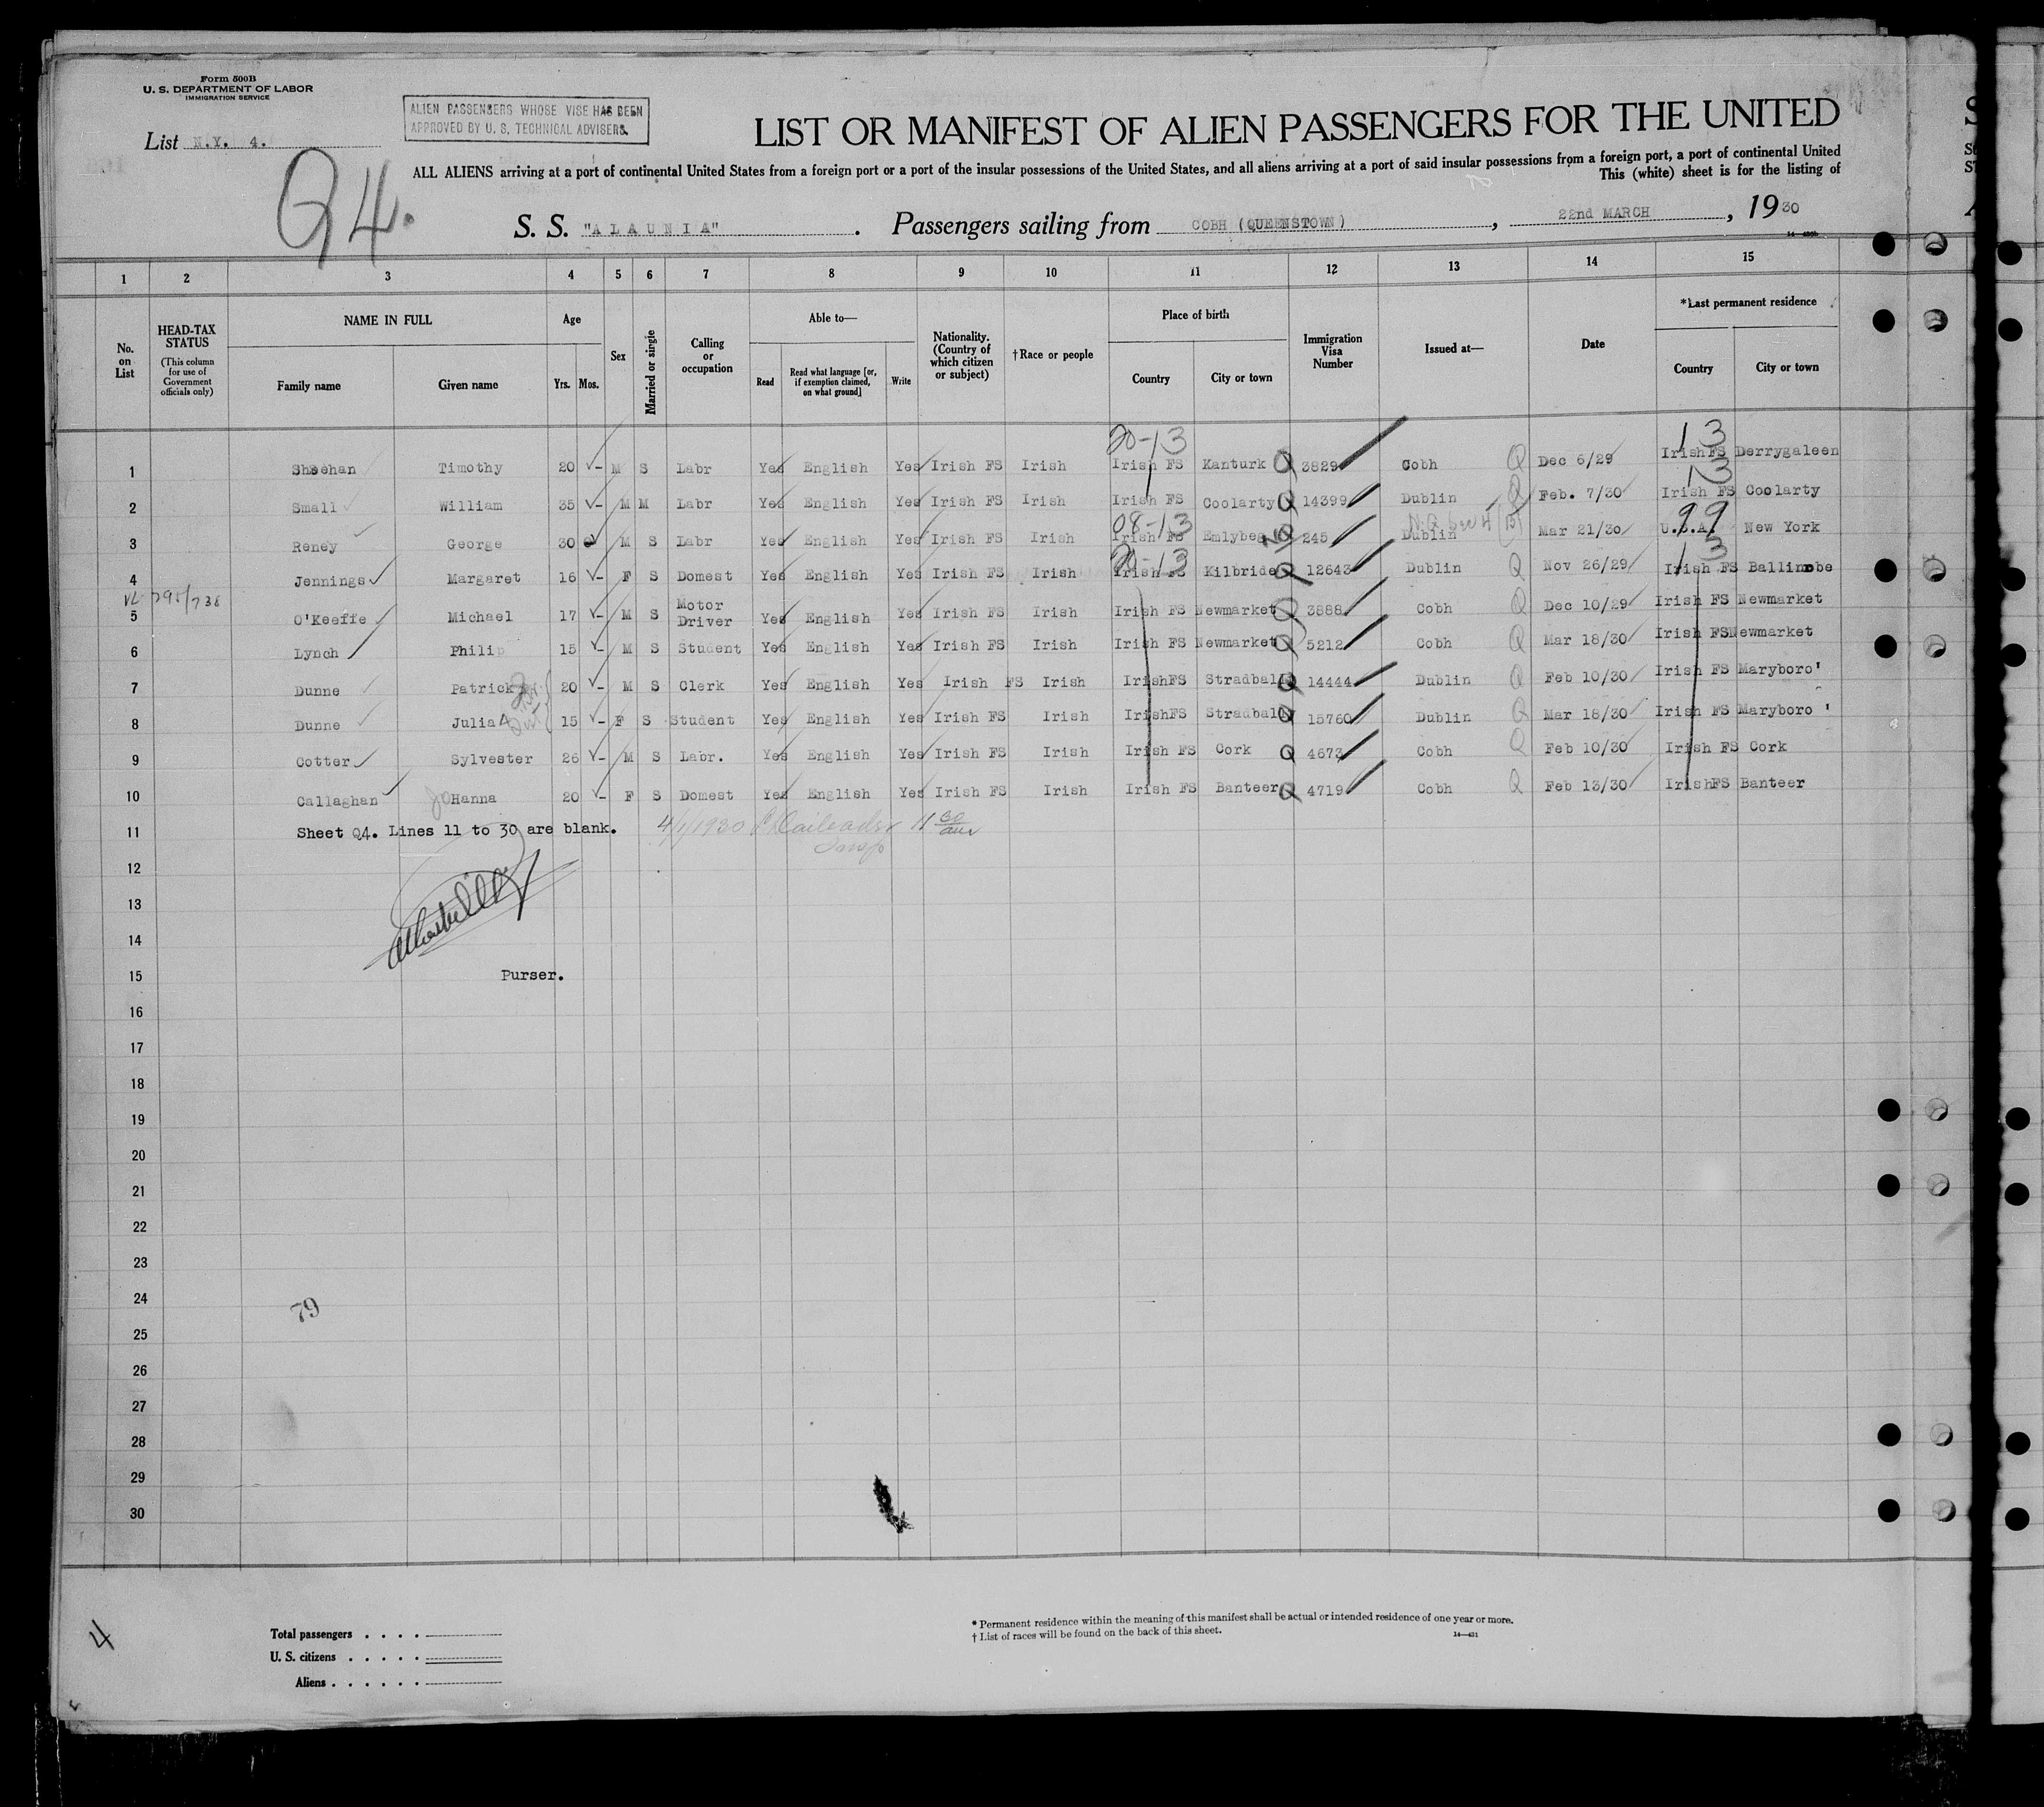 Form 500B
U. S. DEPARTMENT OF LABOR
IMMIGRATION SERVICE
ALIEN PASSENGERS WHOSE VISE HAS BEEN
APPROVED BY U. S. TECHNICAL ADVISERS.
List N.Y. 4.
Q4.
LIST OR MANIFEST OF ALIEN PASSENGERS FOR THE UNITED
ALL ALIENS arriving at a port of continental United States from a foreign port or a port of the insular possessions of the United States, and all aliens arriving at a port of said insular possessions from a foreign port, a port of continental United
This (white) sheet is for the listing of
S. S. "ALAUNIA". Passengers sailing from COBH (QUEENSTOWN), 22nd MARCH, 1930
1 2 3 4 5 6 7 8 9 10 11 12 13 14 15
No. on List
HEAD-TAX STATUS (This column for use of Government officials only)
NAME IN FULL
Family name
Given name
Age
Yrs. Mos.
Sex
Married or single
Calling or occupation
Able to—
Read
Read what language [or, if exemption claimed, on what ground]
Write
Nationality. (Country of which citizen or subject)
†Race or people
Place of birth
Country
City or town
Immigration Visa Number
Issued at—
Date
*Last permanent residence
Country
City or town
20-13 13
1 Sheehan Timothy 20 - M S Labr Yes English Yes Irish FS Irish Irish FS Kanturk Q 3829 Cobh Q Dec 6/29 IrishFS Derrygaleen
13
2 Small William 35 - M M Labr Yes English Yes Irish FS Irish Irish FS Coolarty Q 14399 Dublin Q Feb. 7/30 Irish FS Coolarty
08-13 99
3 Reney George 30 M S Labr Yes English Yes Irish FS Irish Irish FS Emlybeg 245 Dublin Mar 21/30 U.S.A. New York
20-13 13
4 Jennings Margaret 16 - F S Domest Yes English Yes Irish FS Irish Irish FS Kilbride Q 12643 Dublin Q Nov 26/29 Irish FS Ballinrobe
795/738
5 O'Keeffe Michael 17 - M S Motor Driver Yes English Yes Irish FS Irish Irish FS Newmarket Q 3888 Cobh Q Dec 10/29 Irish FS Newmarket
6 Lynch Philip 15 - M S Student Yes English Yes Irish FS Irish Irish FS Newmarket Q 5212 Cobh Q Mar 18/30 Irish FS Newmarket
7 Dunne Patrick 20 - M S Clerk Yes English Yes Irish FS Irish IrishFS Stradbal Q 14444 Dublin Q Feb 10/30 Irish FS Maryboro'
8 Dunne Julia A 15 - F S Student Yes English Yes Irish FS Irish IrishFS Stradbal Q 15760 Dublin Q Mar 18/30 Irish FS Maryboro '
9 Cotter Sylvester 26 - M S Labr. Yes English Yes Irish FS Irish Irish FS Cork Q 4673 Cobh Q Feb 10/30 Irish FS Cork
10 Callaghan JoHanna 20 - F S Domest Yes English Yes Irish FS Irish Irish FS Banteer Q 4719 Cobh Q Feb 13/30 IrishFS Banteer
11 Sheet Q4. Lines 11 to 30 are blank. 4/1/1930
12
13
14
15 Purser.
16
17
18
19
20
21
22
23
24
79
25
26
27
28
29
30
4
Total passengers . . . .
U. S. citizens . . . . .
Aliens . . . . . .
* Permanent residence within the meaning of this manifest shall be actual or intended residence of one year or more.
† List of races will be found on the back of this sheet.
14—431